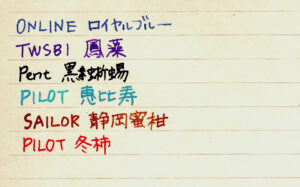 ONLINE ロイヤルブルー
TWSBI 鳳藻
Pent 黒紺蜥蜴
PILOT 恵比寿
SAILOR 静岡蜜柑
PILOT 冬柿